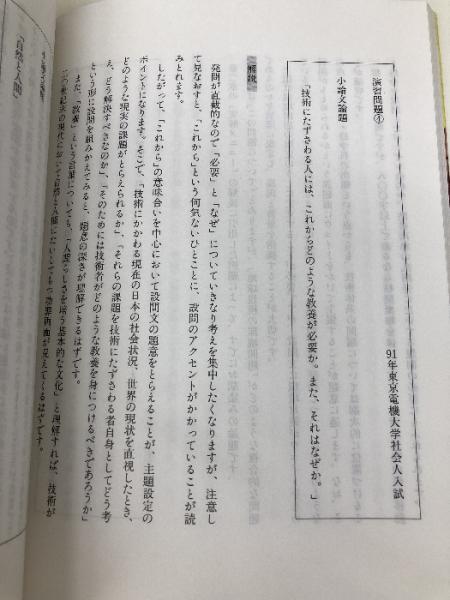 演習問題④
91年東京電機大学社会人入試
小論文論題
「技術にたずさわる人には、これからどのような教養が必要か。また、それはなぜか。」
【解説】
発問が直截的なので「必要」と「なぜ」についていきなり考えを集中したくなりますが、注意し
て見なおすと、「これから」という何気ないひとことに、設問のアクセントがかかっていることが読
みとれます。
したがって、「これから」の意味合いを中心において設問文の題意をとらえることが、主題設定の
ポイントになります。そこで、「技術にかかわる現在の日本の社会状況、世界の現状を直視したとき、
どのような現実の課題がとらえられるか」、「それらの課題を技術にたずさわる者自身としてどう考
え、どう解決すべきなのか」、「そのためには技術者がどのような教養を身につけるべきであろうか」
という形に設問を組みかえてみると、題意の深さが理解できるはずです。
また、「教養」という言葉についても、「人間らしさを培う基本的な文化」と理解すれば、技術が
二〇世紀末の現代において自然と人間にたいしてもつ効罪両面が見えてくるはずです。
「自然と人間」